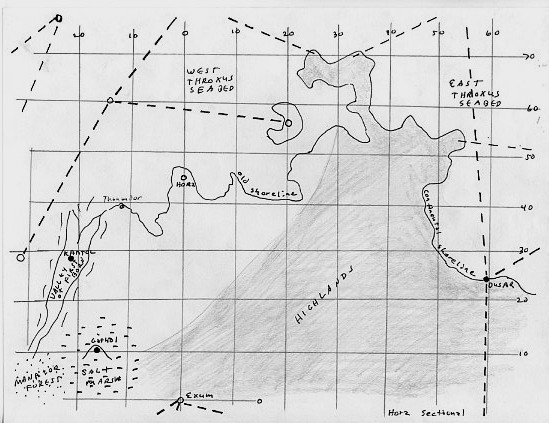 20 10 0 10 20 30 40 50 60
70
WEST
THROXUS
SEABED
EAST
THROXUS
SEABED
60
50
HORZ
old
shoreline
Thanmdor
40
continental
shoreline
30
VALLEY
OF FIRST
BORN
DUSAR
20
HIGHLANDS
10
SALT
MARSH
FOREST
Exum
0
Horz Sectional